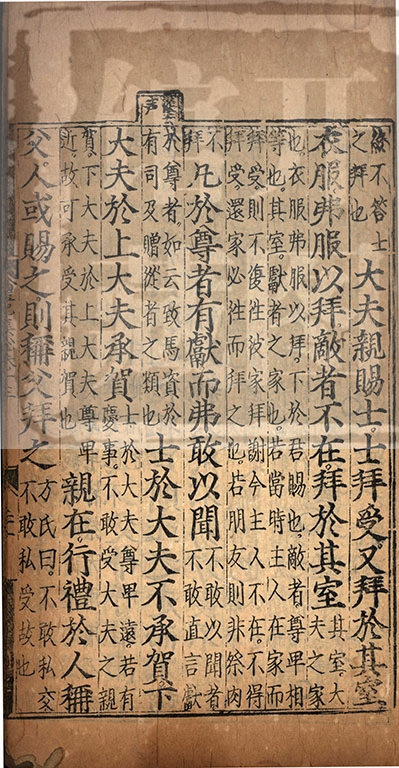 終不答士
之拜也
大夫親賜士士拜受又拜於其室
衣服弗服以拜敵者不在拜於其室
其室大
夫之家
也衣服弗服以拜下於君賜也敵者尊卑相
等也其室獻者之家也若當時主人在家而
拜受則不復往彼家拜謝今主人不在不得
拜受還家必往而拜之也若朋友則非祭肉
不
拜
凡於尊者有獻而弗敢以聞
不敢以聞者
不敢直言獻
於尊者如云致馬資於
有司及贈從者之類也
士於大夫不承賀下
大夫於上大夫承賀
士於大夫尊卑遠若有
慶事不敢受大夫之親
賀下大夫於上大夫尊卑
近故可承受其親賀也
親在行禮於人稱
父人或賜之則稱父拜之
方氏曰不敢私交
不敢私受故也